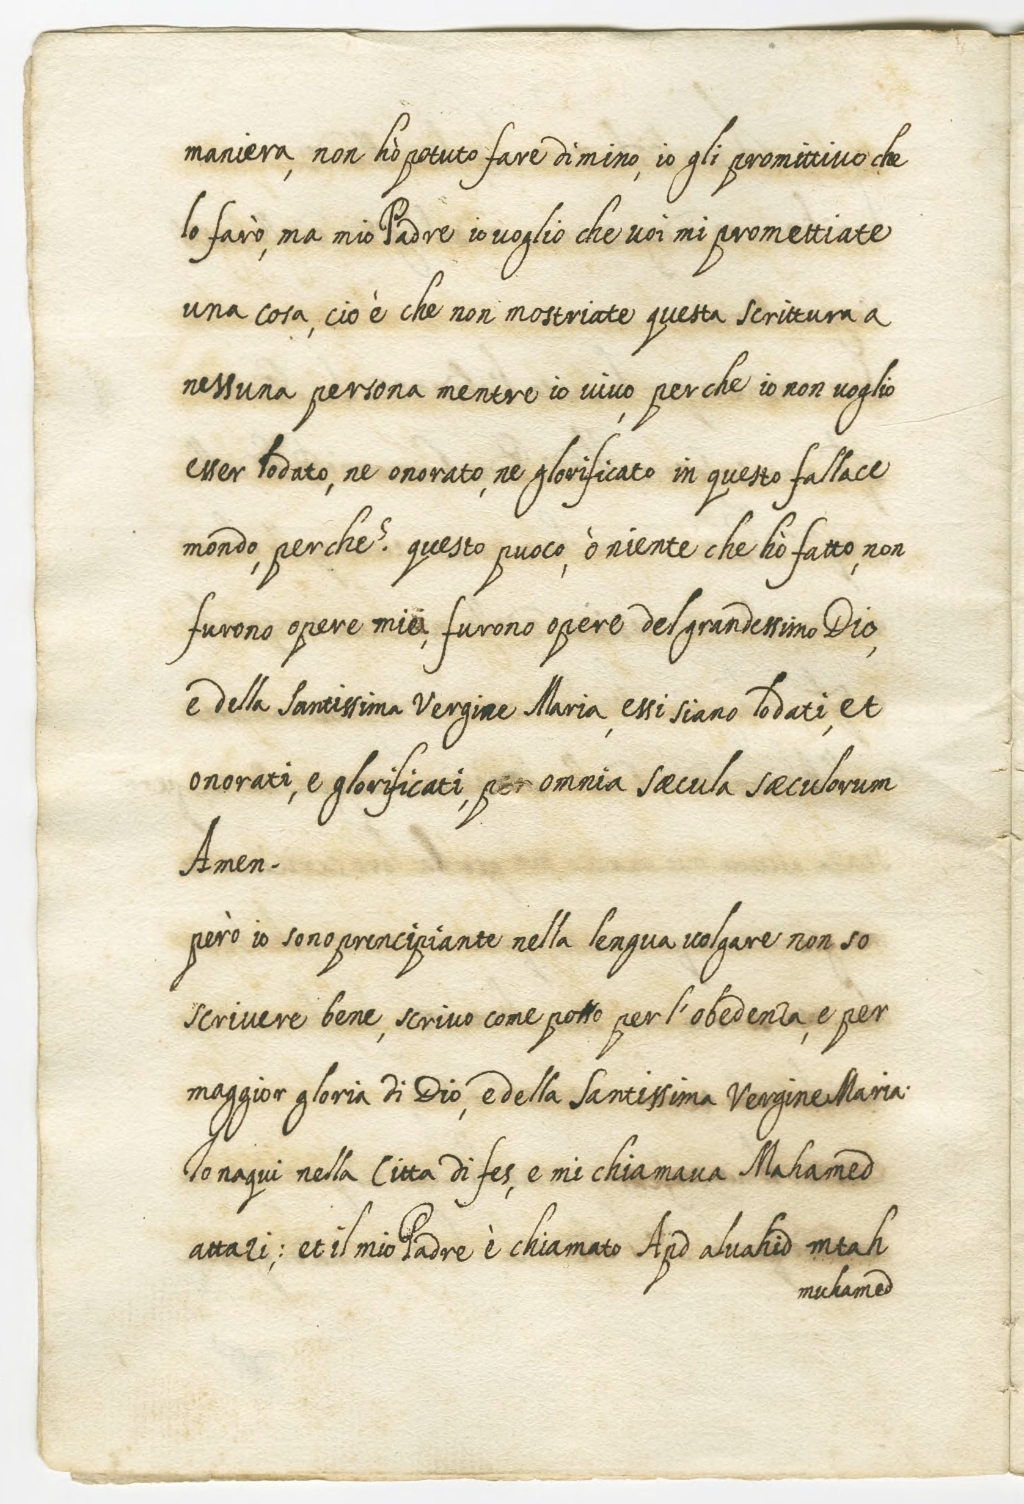 maniera, non hò potuto fare di mino, io gli promittivo che
lo farò, ma mio Padre io uoglio che uoi mi promettiate
una cosa, cio è che non mostriate questa scrittura a
nessuna persona mentre io uiuo, perche io non uoglio
esser lodato, ne onorato, ne glorificato in questo fallace
mondo, perche. questo puoco, ò niente che hò fatto, non
furono opere mie, furono opere del grandessimo Dio,
e della Santissima Vergine Maria, essi siano lodati, et
onorati, e glorificati, per omnia sæcula sæculorum
Amen.
però io sono principiante nella lengua uolgare non so
scriuere bene, scriuo come posso per l'obedenza, e per
maggior gloria di Dio, e della Santissima Vergine Maria.
Io naqui nella Citta di fes, e mi chiamaua Mahamed
attazi; et il mio Padre è chiamato Apd aluahid mtah
muhamed